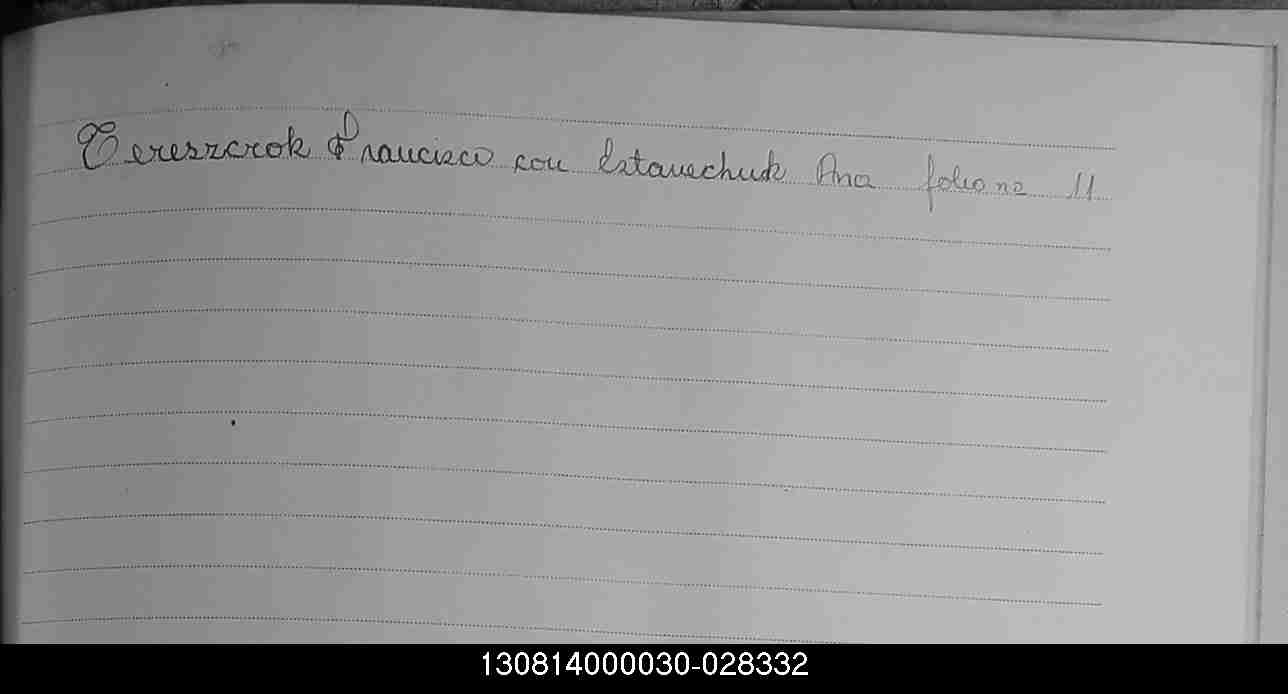 Tereszczok Francisco con Estavechuk Ana folio nº 11
130814000030-028332